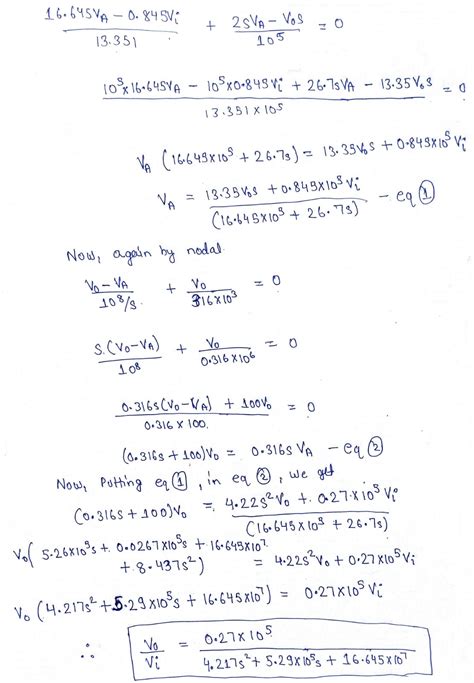 (16.645VA − 0.845Vi)/13.351 + (2SVA − V0S)/10^5 = 0
(10^5×16.645VA − 10^5×0.845Vi + 26.7SVA − 13.35V0S)/(13.351×10^5) = 0
VA (16.645×10^5 + 26.7s) = 13.35V0S + 0.845×10^5Vi
VA = (13.35V0S + 0.845×10^5Vi)/(16.645×10^5 + 26.7s) − eq ①
Now, again by nodal
(V0 − VA)/(10^8/s) + V0/(316×10^3) = 0
S.(V0−VA)/10^8 + V0/(0.316×10^6) = 0
(0.316S(V0−VA) + 100V0)/(0.316×100) = 0
(0.316s + 100)V0 = 0.316s VA − eq ②
Now, Putting eq ①, in eq ②, we get
(0.316S + 100)V0 = (4.22S^2V0 + 0.27×10^5Vi)/(16.645×10^5 + 26.7s)
V0( 5.26×10^5s + 0.0267×10^5s + 16.645×10^7
+ 8.437s^2 ) = 4.22S^2V0 + 0.27×10^5Vi
V0 (4.217s^2 + 5.29×10^5s + 16.645×10^7) = 0.27×10^5Vi
∴ V0/Vi = (0.27×10^5)/(4.217s^2 + 5.29×10^5s + 16.645×10^7)